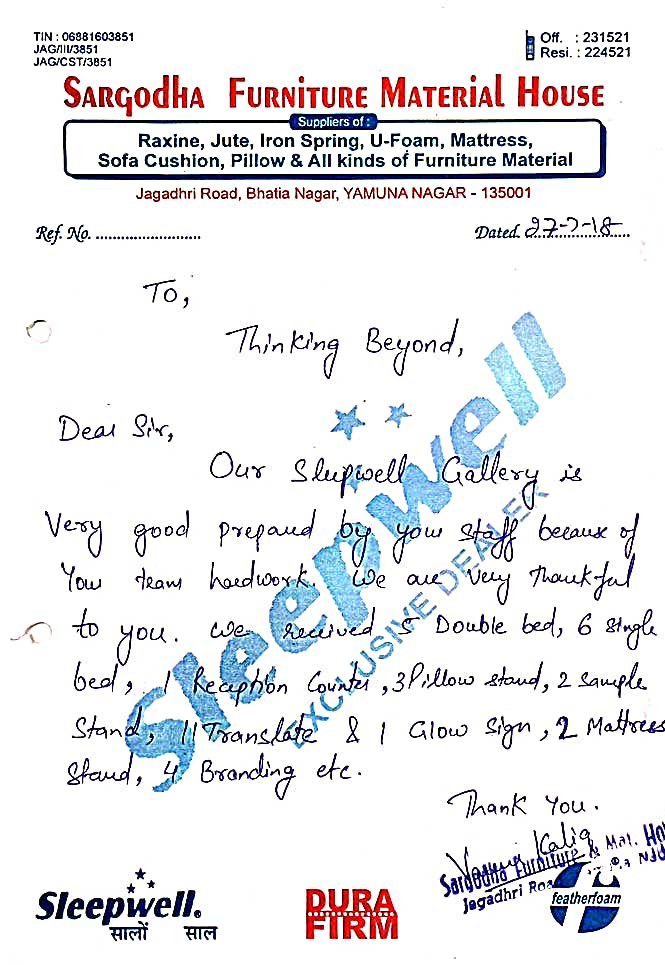 TIN : 06881603851
JAG/III/3851
JAG/CST/3851
Off. : 231521
Resi. : 224521
SARGODHA FURNITURE MATERIAL HOUSE
Suppliers of :
Raxine, Jute, Iron Spring, U-Foam, Mattress,
Sofa Cushion, Pillow & All kinds of Furniture Material
Jagadhri Road, Bhatia Nagar, YAMUNA NAGAR - 135001
Ref. No. ..........................
Dated 27-7-18
To,
Thinking Beyond,
Dear Sir,
Our Sleepwell Gallery is
Very good prepared by your staff because of
Your team hardwork. We are very thankful
to you. We received 5 Double bed, 6 single
bed, 1 Reception Counter, 3 Pillow stand, 2 sample
Stand, 11 Translate & 1 Glow Sign, 2 Mattress
Stand, 4 Branding etc.
Thank You.
Sleepwell
EXCLUSIVE DEALER
Sargodha Furniture & Mat. Ho
Jagadhri Roa
Sleepwell®
सालों साल
DURA
FIRM
featherfoam